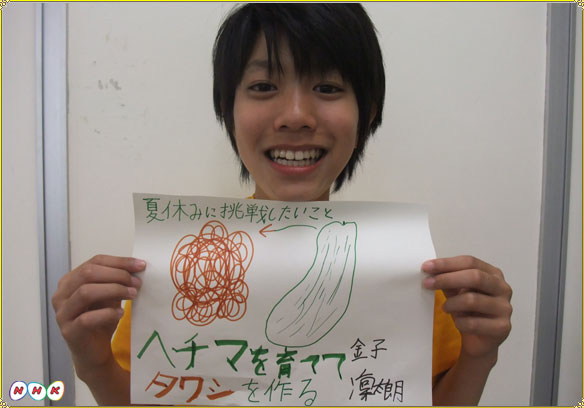 夏休みに挑戦したいこと
ヘチマを育てて
タワシを作る
金子
凜太朗
NHK